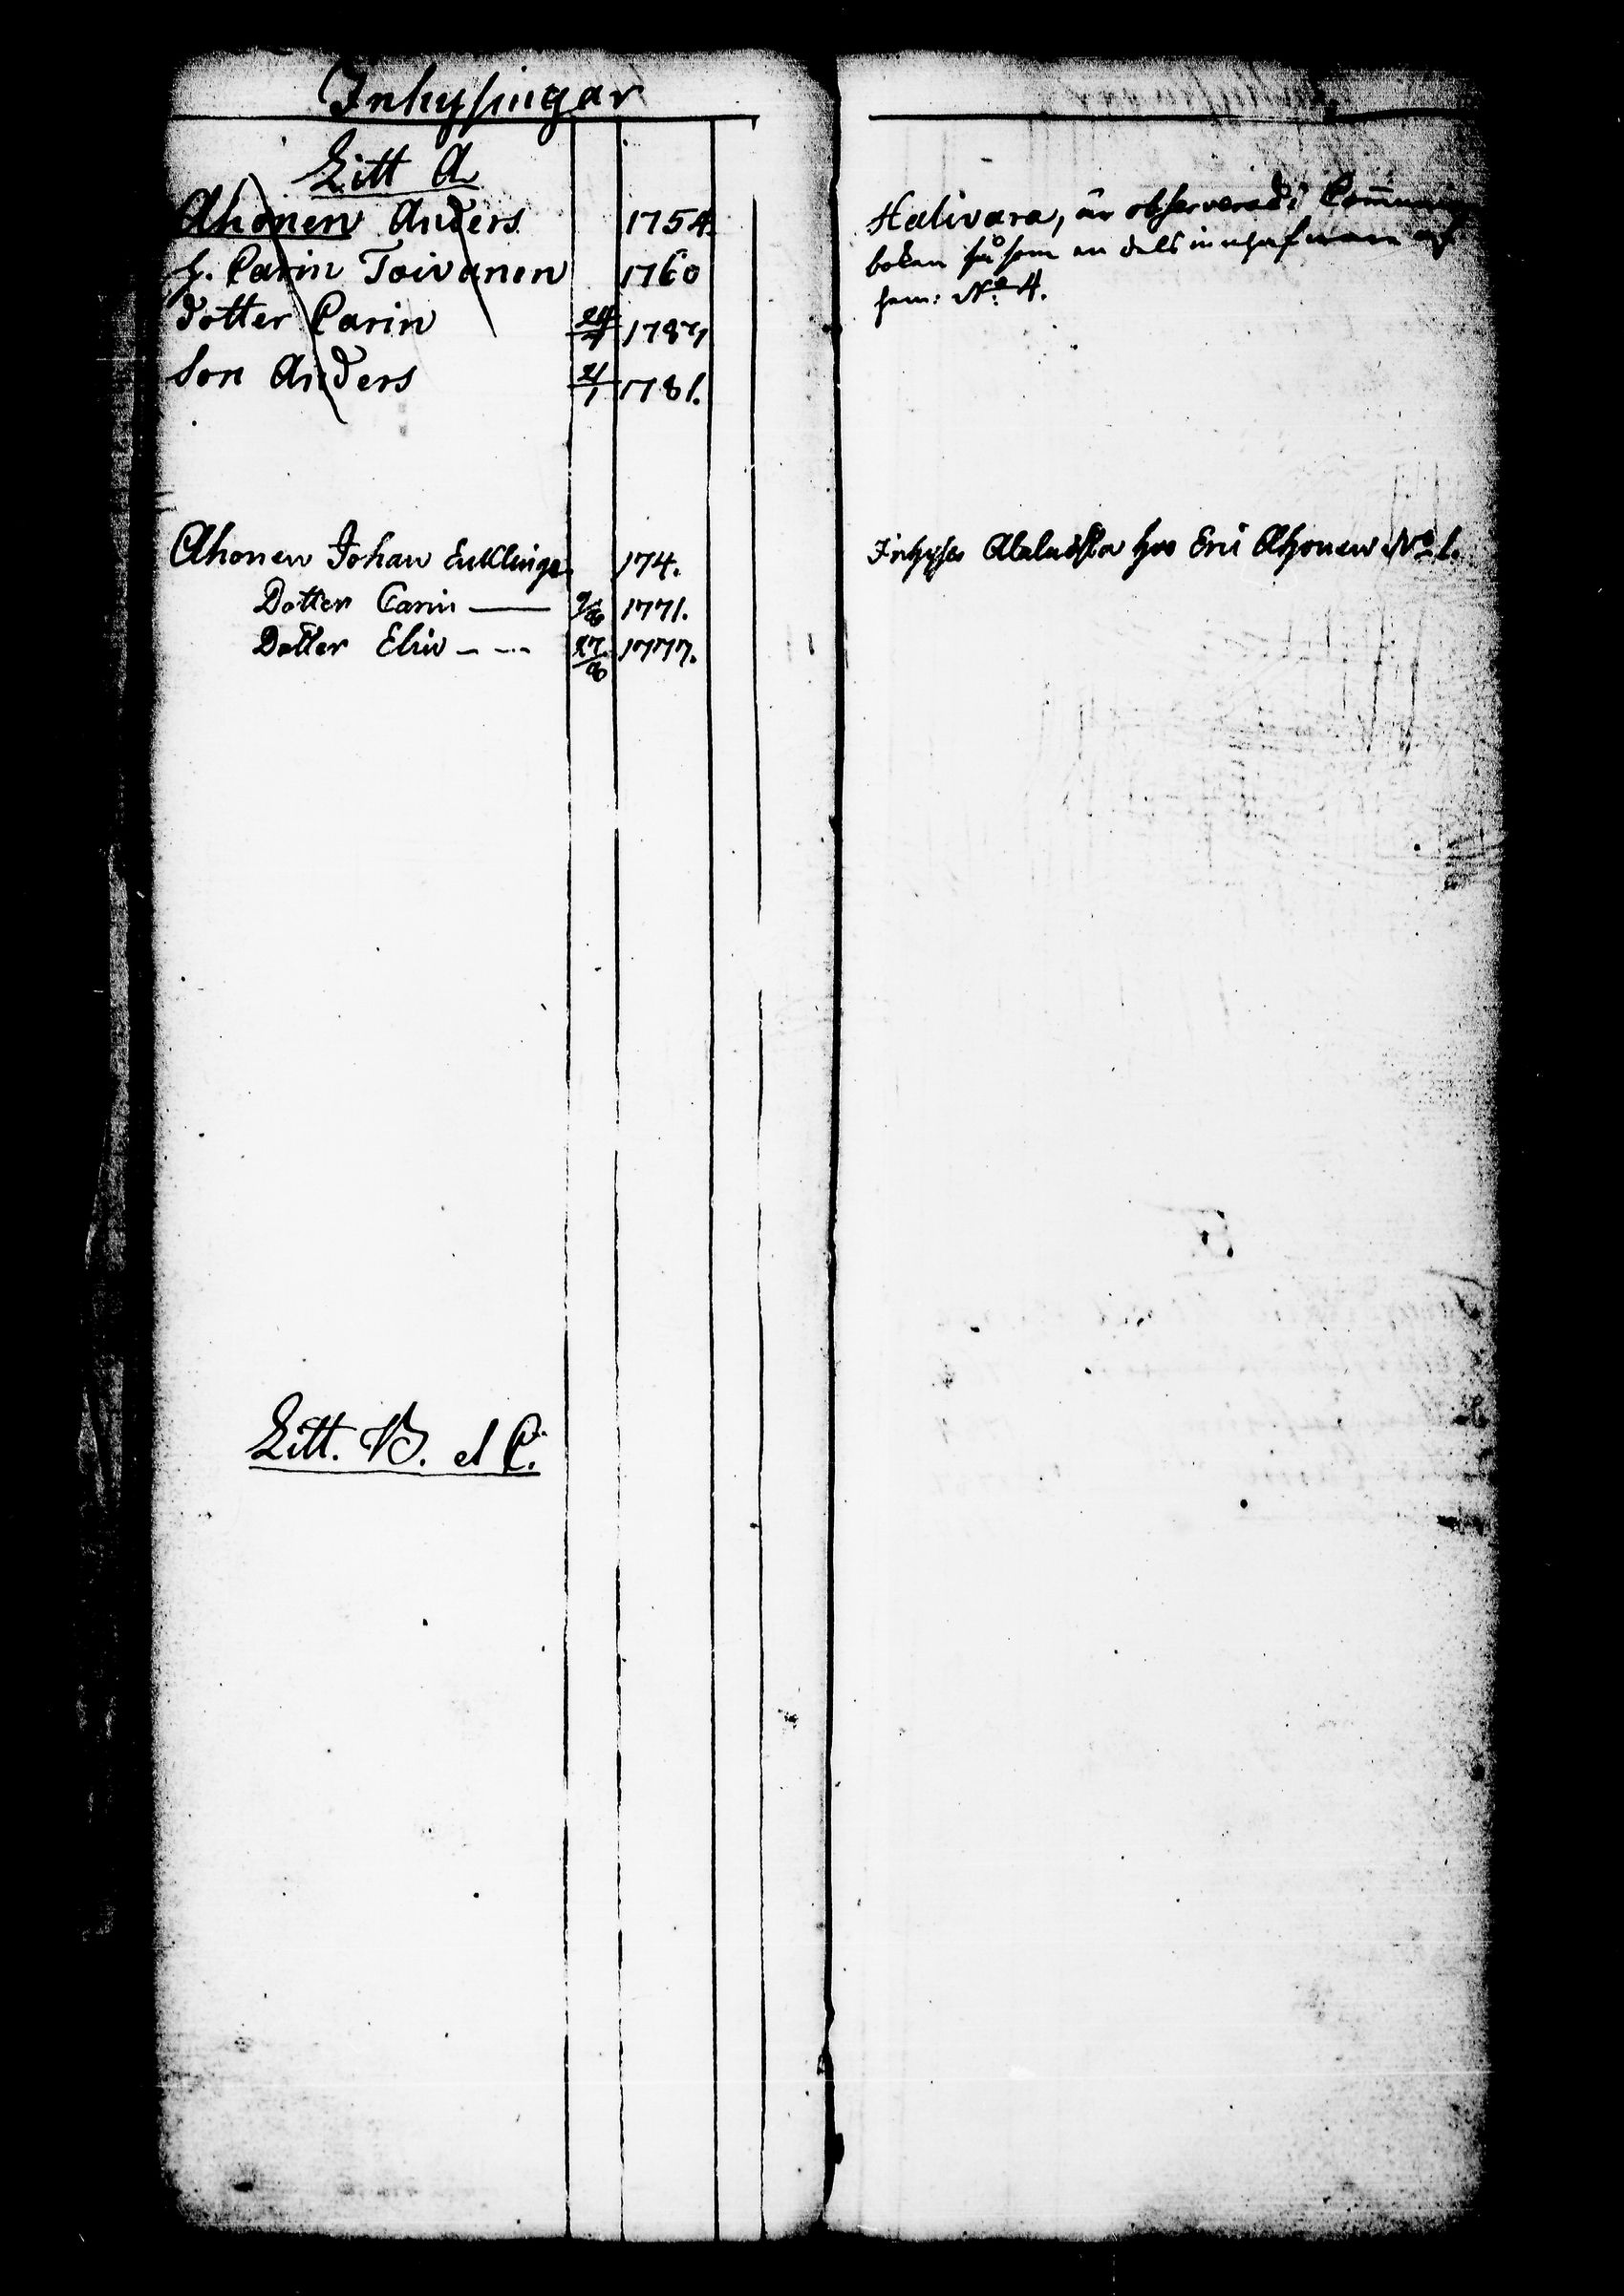 Inhysingar
Litt A
Ahonen Anders 1754.
h. Carin Toivanen 1760
dotter Carin 1787
Son Anders 21/1 1781.
Halivara, är observerad i
boken såsom en dels innehafware af
hem: No 4.
Ahonen Johan Enklinge 174.
Dotter Carin — 9/8 1771.
Dotter Elin - - 27/8 1777.
Inhyses hos Eric Ahonen No 1.
Litt. B. et C.